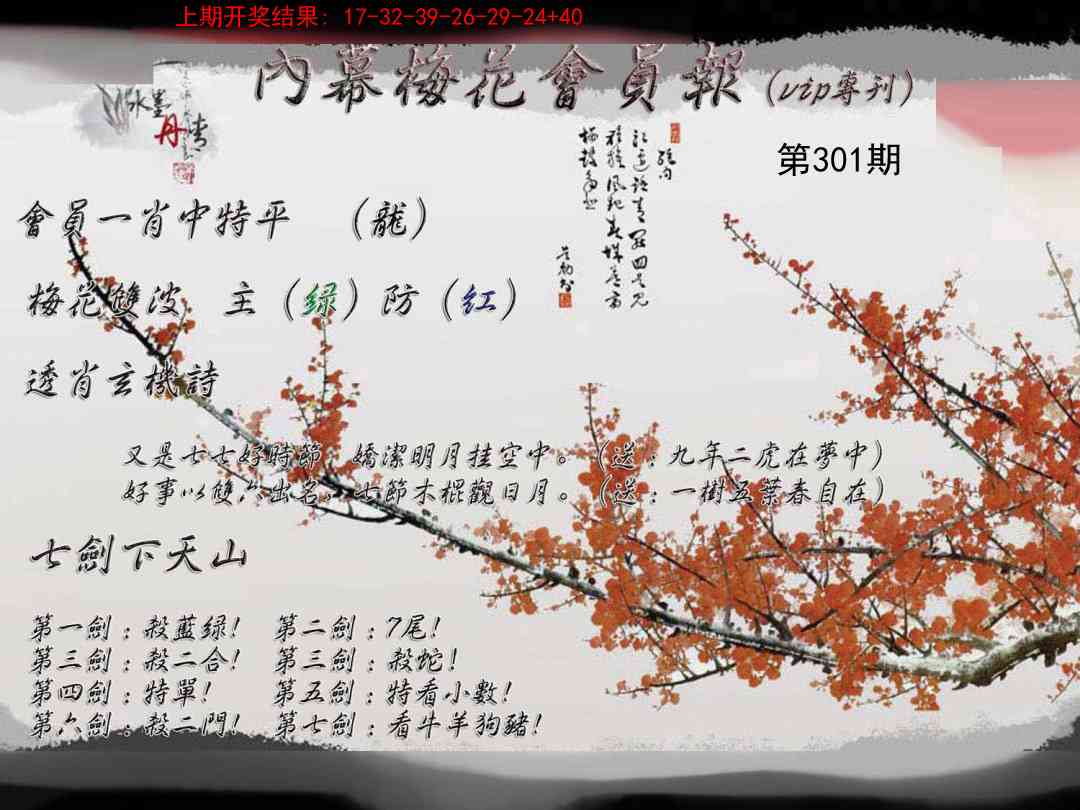 上期开奖结果: 17-32-39-26-29-24+40
內幕梅花會員報(vip專刊)
水墨
丹青
第301期
會員一肖中特平 (龍)
梅花雙波 主(绿)防(红)
透肖玄機詩
又是七七好時節,嬌潔明月挂空中。(送:九年二虎在夢中)
好事以雙六出名,七節木棍觀日月。(送:一樹五葉春自在)
七劍下天山
第一劍:殺藍绿! 第二劍:7尾!
第三劍:殺二合! 第三劍:殺蛇!
第四劍:特單! 第五劍:特看小數!
第六劍:殺二門! 第七劍:看牛羊狗豬!